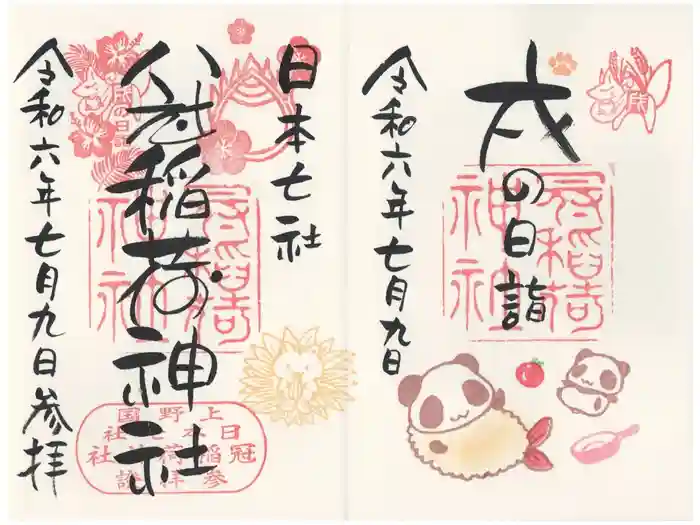 戌
戌の日詣
冠稲荷
神社
令和六年七月九日
日本七社
冠稲荷神社
冠稲荷
神社
戌の日詣
上野国
日本七社
冠稲荷神社
参拝證
令和六年七月九日参拝